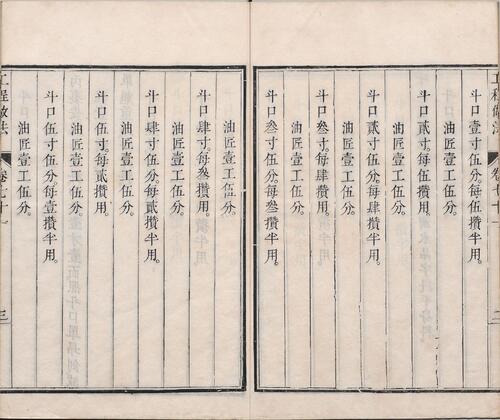 工程做法 卷七十一 二
斗口壹寸伍分每伍攢半用。
油匠壹工伍分。
斗口貳寸每伍攢用。
油匠壹工伍分。
斗口貳寸伍分每肆攢半用。
油匠壹工伍分。
斗口叁寸每肆攢用。
油匠壹工伍分。
斗口叁寸伍分每叁攢半用。
油匠壹工伍分。
斗口肆寸每叁攢用。
油匠壹工伍分。
斗口肆寸伍分每貳攢半用。
油匠壹工伍分。
斗口伍寸每貳攢用。
油匠壹工伍分。
斗口伍寸伍分每壹攢半用。
油匠壹工伍分。
工程做法 卷七十一 三